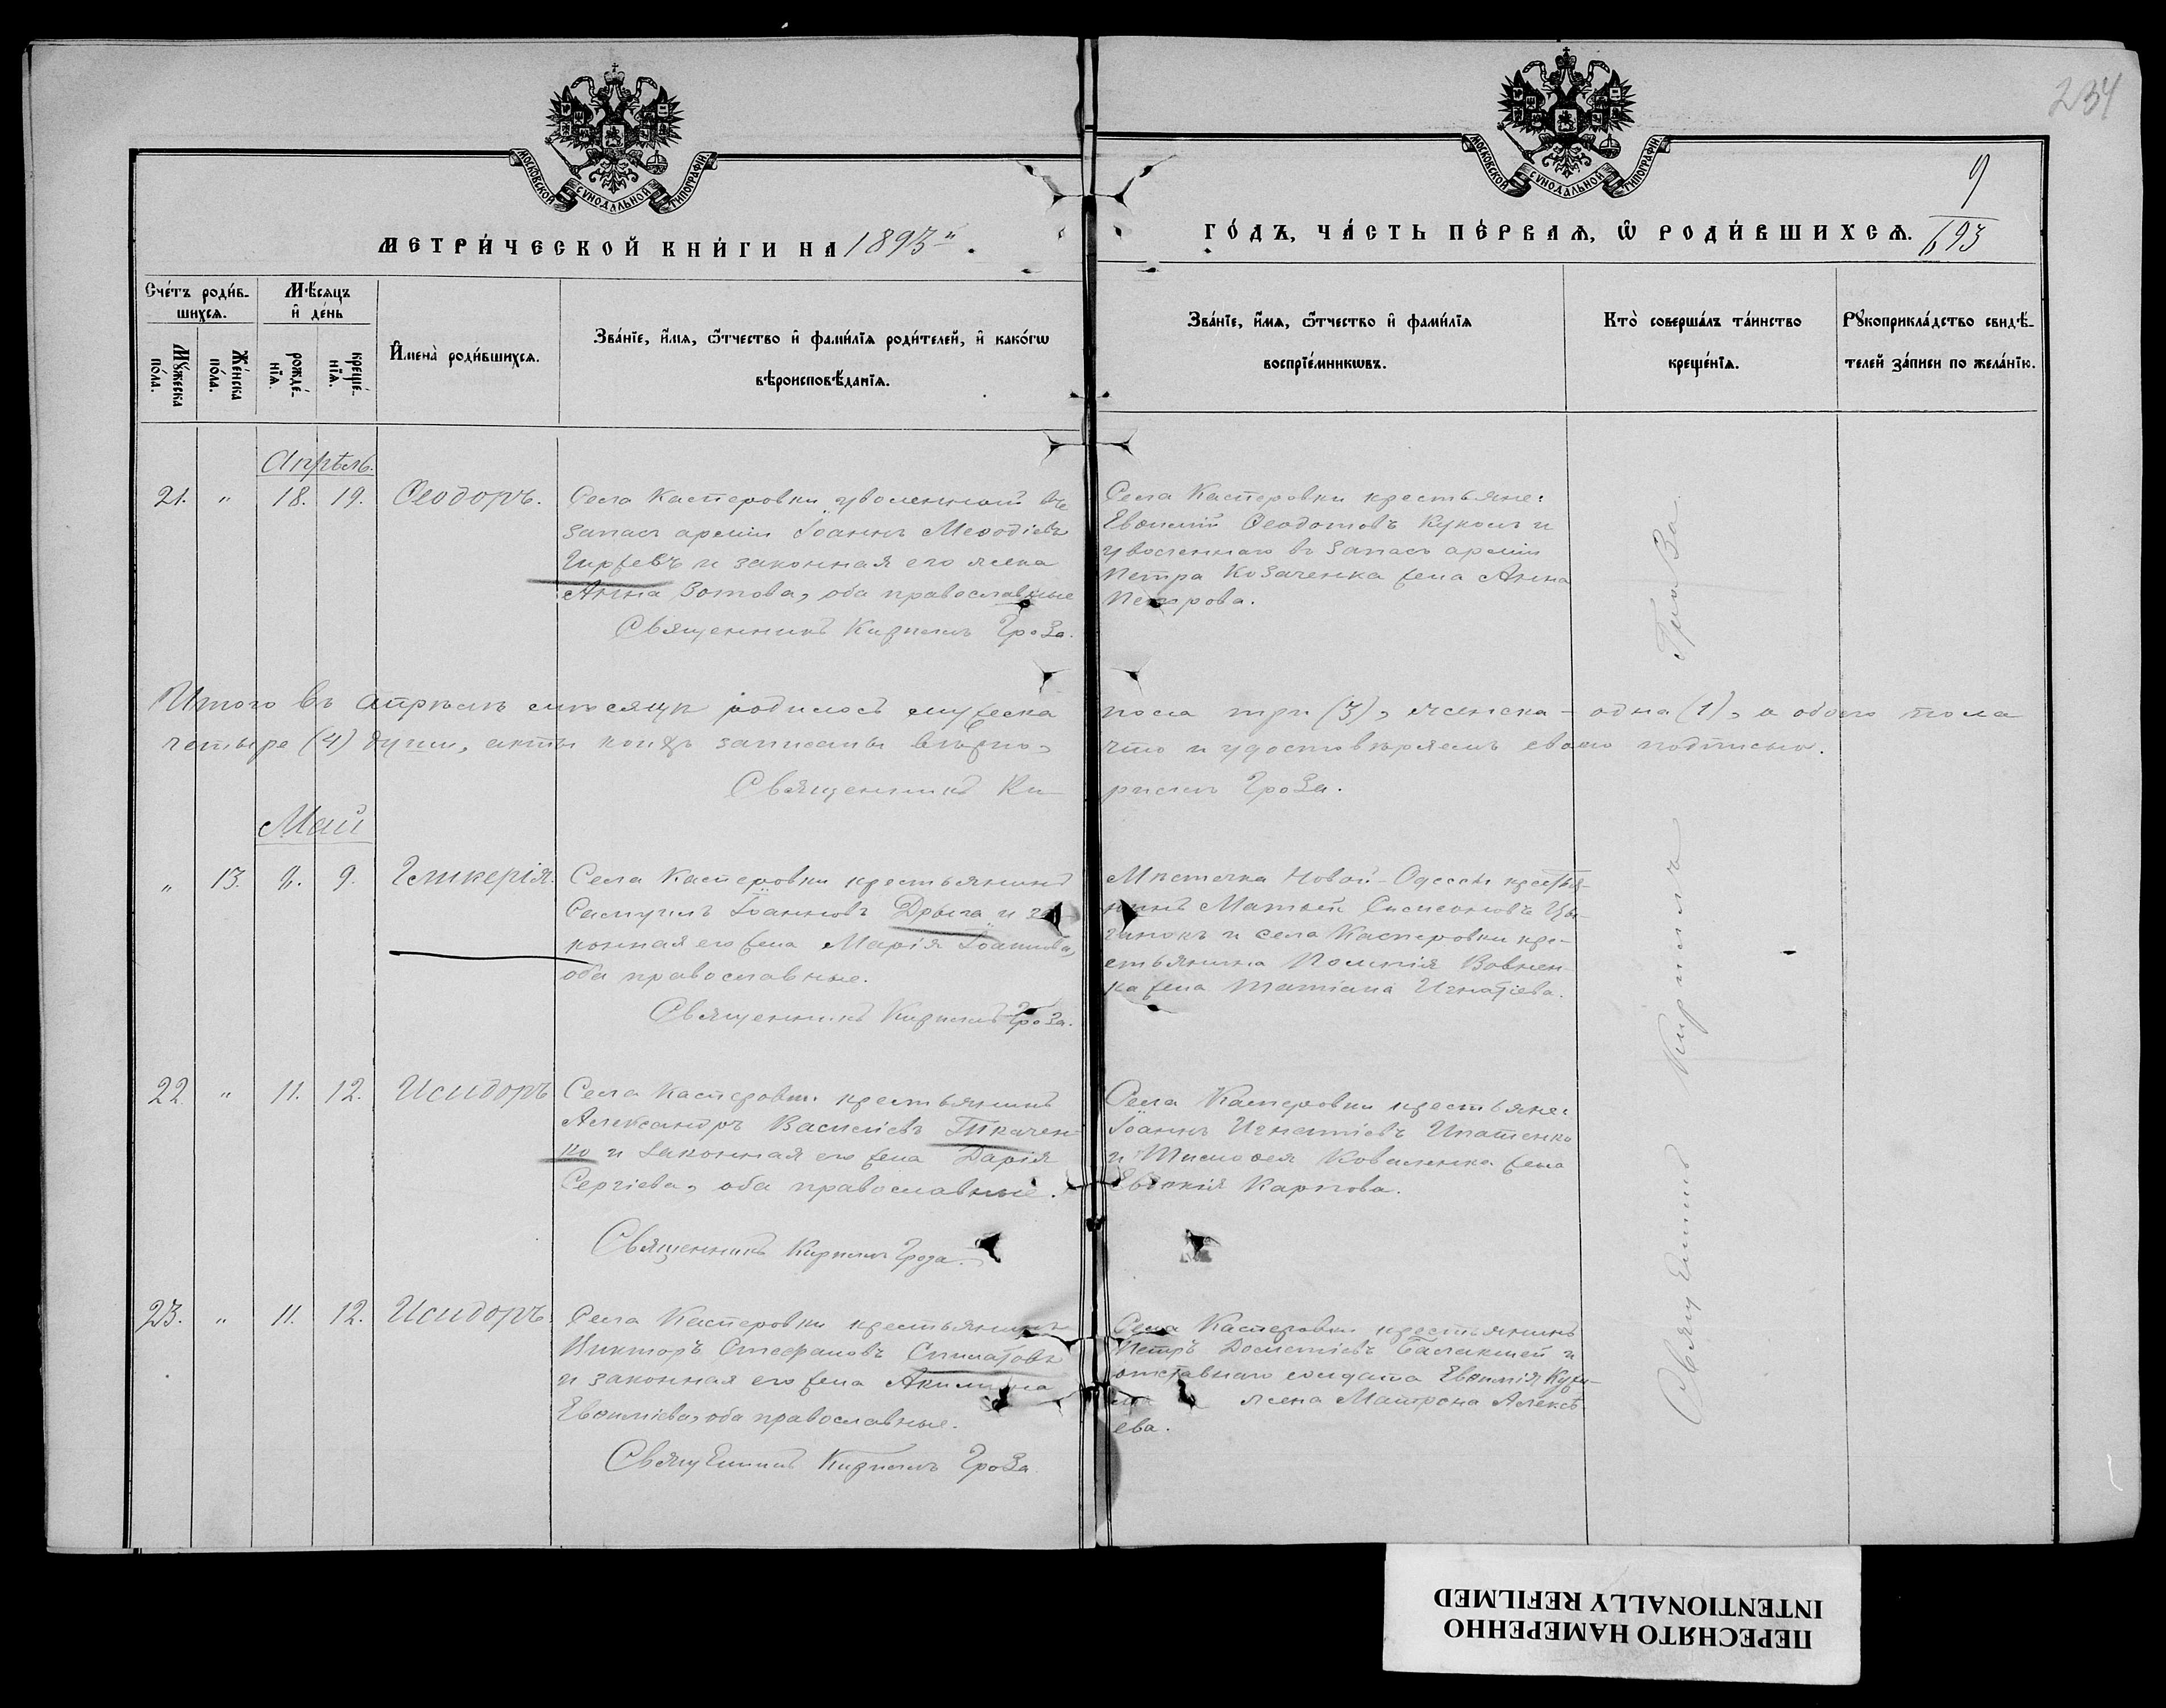 234
МОСКОВСКОЙ СѴНОДАЛЬНОЙ ТИПОГРАФІИ.
МОСКОВСКОЙ СѴНОДАЛЬНОЙ ТИПОГРАФІИ.
9
693
МЕТРИ́ЧЕСКОЙ КНИ́ГИ НА 1893й
ГО́ДЪ, ЧА́СТЬ ПЕ́РВАѦ, Ѿ РОДИ́ВШИХСѦ.
Сче́тъ роди́в-
шихсѧ.
Мѣ́сѧцъ
и҆ де́нь
Мꙋ́жеска
по́ла.
Же́нска
по́ла.
рожде́-
нїѧ.
креще́-
нїѧ.
И҆мена̀ роди́вшихсѧ.
Зва́нїе, и҆́мѧ, ѻ҆́тчество и҆ фами́лїѧ роди́телей, и҆ како́гѡ
вѣроисповѣ́данїѧ.
Зва́нїе, и҆́мѧ, ѻ҆́тчество и҆ фами́лїѧ
воспрїе́мникѡвъ.
Кто̀ соверша́лъ та́инство
креще́нїѧ.
Рꙋкоприкла́дство свидѣ́-
телей за́писи по жела́нїю.
Апрѣль.
21. " 18. 19. Ѳеодоръ.
Села Касперовки уволенный въ
запасъ арміи Іоаннъ Меѳодіевъ
и законная его жена
Анна Зотова, оба православные
Священникъ Кириллъ Гроза.
Села Касперовки крестьяне:
Евѳимій Ѳеодотовъ и
уволеннаго въ запасъ арміи
Петра Козаченка жена Анна
Петрова.
Итого въ апрѣлѣ мѣсяцѣ родилось мужеска пола три (3), женска - одна (1), а обоего пола
четыре (4) души, акты коихъ записаны вѣрно, что и удостовѣряемъ своею подписью.
Священникъ Кириллъ Гроза.
Май
" 13. 8. 9. Гликерія.
Села Касперовки крестьянинъ
Самуилъ Іоанновъ Дрыга и за-
конная его жена Марія Іоаннова,
оба православные.
Священникъ Кириллъ Гроза.
Мѣстечка Новой-Одессы крестья-
нинъ Матѳей Симеоновъ Цы-
ганокъ и села Касперовки кре-
стьянина Вовнен-
ка жена Татіана Игнатіева.
22. " 11. 12. Исидоръ
Села Касперовки крестьянинъ
Александръ Василіевъ Ткачен-
ко и законная его жена Дарія
Сергіева, оба православные.
Священникъ Кириллъ Гроза.
Села Касперовки крестьяне:
Іоаннъ Игнатіевъ Ипатенко
и Тимоѳея Коваленка жена
Евдокія Карпова.
23. " 11. 12. Исидоръ.
Села Касперовки крестьянинъ
Викторъ Стефановъ
и законная его жена Акилина
Евѳиміева, оба православные.
Священникъ Кириллъ Гроза
Села Касперовки крестьянинъ
Петръ Дометіевъ и
отставнаго солдата Евѳимія
жена Матрона Алексѣ
ева.
Священникъ Кириллъ Гроза.
ПЕРЕСНЯТО НАМЕРЕННО
INTENTIONALLY REFILMED